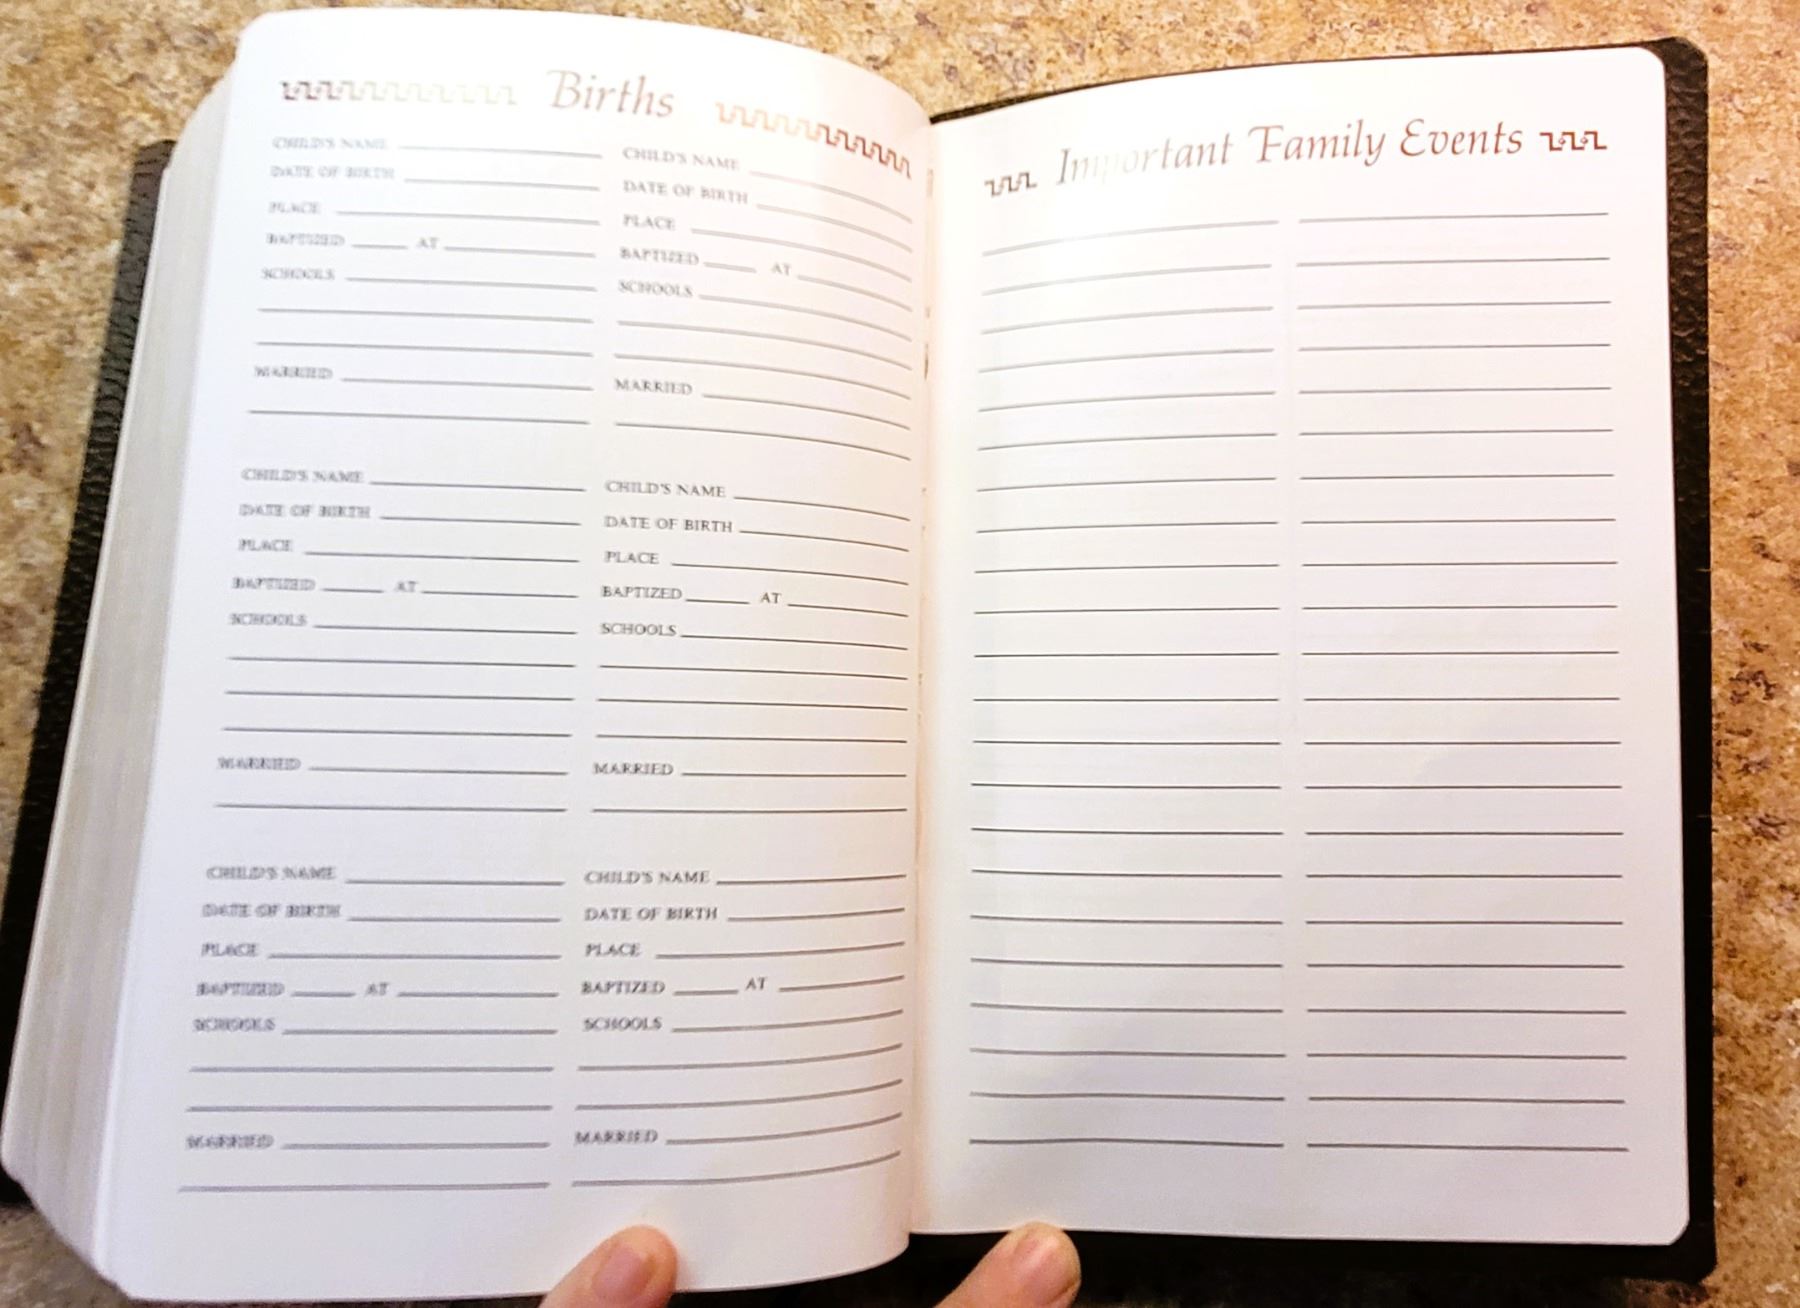 Births
CHILD'S NAME
DATE OF BIRTH
PLACE
BAPTIZED AT
SCHOOLS
MARRIED
CHILD'S NAME
DATE OF BIRTH
PLACE
BAPTIZED AT
SCHOOLS
MARRIED
CHILD'S NAME
DATE OF BIRTH
PLACE
BAPTIZED AT
SCHOOLS
MARRIED
CHILD'S NAME
DATE OF BIRTH
PLACE
BAPTIZED AT
SCHOOLS
MARRIED
CHILD'S NAME
DATE OF BIRTH
PLACE
BAPTIZED AT
SCHOOLS
MARRIED
CHILD'S NAME
DATE OF BIRTH
PLACE
BAPTIZED AT
SCHOOLS
MARRIED
Important Family Events